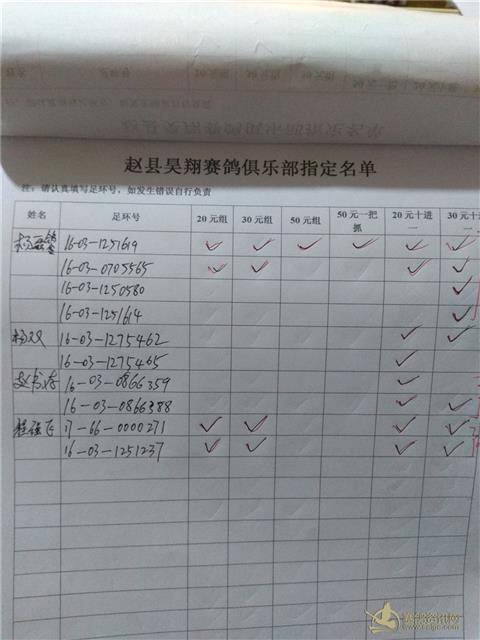 赵县昊翔赛鸽俱乐部指定名单
注：请认真填写足环号，如发生错误自行负责
姓名 足环号 20元组 30元组 50元组 50元一把抓 20元十进一 30元十进一
16-03-1251619 ✓ ✓ ✓ ✓ ✓ ✓
16-03-0705565 ✓ ✓ ✓ ✓
16-03-1250580 ✓
16-03-1251614 ✓
杨双 16-03-1275462 ✓ ✓
16-03-1275465 ✓
16-03-0866359 ✓
16-03-0866388 ✓ ✓
17-66-0000271 ✓ ✓ ✓ ✓
16-03-1251237 ✓ ✓ ✓ ✓